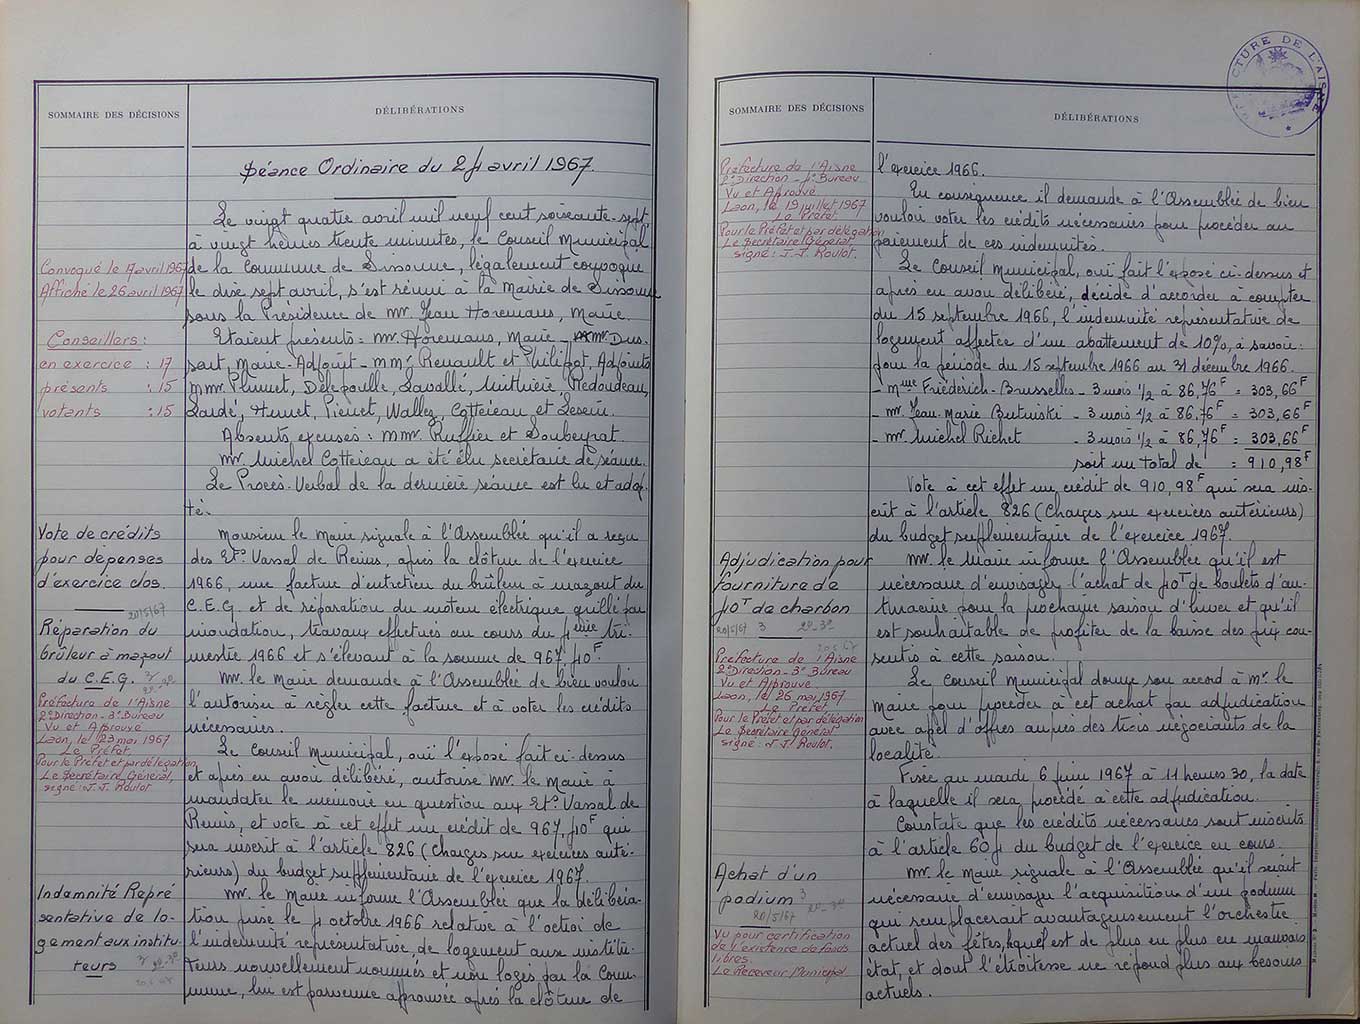 SOMMAIRE DES DÉCISIONS
DÉLIBÉRATIONS
Séance Ordinaire du 24 avril 1967.
Le vingt quatre avril mil neuf cent soixante-sept
à vingt heures trente minutes, le Conseil Municipal
Convoqué le 17 avril 1967
de la Commune de Sissonne, légalement convoqué
Affiché le 26 avril 1967
le dix sept avril, s'est réuni à la Mairie de Sissonne
sous la Présidence de Mr. Jean Horemans, Maire.
Conseillers :
Etaient présents : Mr. Horemans, Maire - Mr. Dus-
en exercice : 17
saut, Maire-Adjoint - MMrs Renault et Philipot, Adjoints
présents : 15
MMr. Plumet, Delepoulle, Lavallé, Mithière, Redoudeau,
votants : 15
Lardé, Hunet, Pierret, Wallez, Cottereau et Leseur.
Absents excusés : MMr. Ruffier et Soubeyrat.
Mr. Michel Cottereau a été élu secrétaire de séance.
Le Procès-Verbal de la dernière séance est lu et adop-
té.
Vote de crédits
pour dépenses
d'exercice clos.
20/5/67
Réparation du
brûleur à mazout
du C.E.G.
Préfecture de l'Aisne
2e Direction - 3e Bureau
Vu et Approuvé
Laon, le 23 mai 1967
Le Préfet,
Pour le Préfet et par délégation
Le Secrétaire Général,
signé : J.J. Roulot
Monsieur le Maire signale à l'Assemblée qu'il a reçu
des Ets Vassal de Reims, après la clôture de l'exercice
1966, une facture d'entretien du brûleur à mazout du
C.E.G. et de réparation du moteur électrique grillé par
inondation, travaux effectués au cours du 4ème tri-
mestre 1966 et s'élevant à la somme de 967,40F.
Mr. le Maire demande à l'Assemblée de bien vouloir
l'autoriser à régler cette facture et à voter les crédits
nécessaires.
Le Conseil Municipal, ouï l'exposé fait ci-dessus
et après en avoir délibéré, autorise Mr. le Maire à
mandater le mémoire en question aux Ets Vassal de
Reims, et vote à cet effet un crédit de 967,40F qui
sera inscrit à l'article 826 (Charges sur exercices anté-
rieurs) du budget supplémentaire de l'exercice 1967.
Indemnité Repré
sentative de lo-
gement aux institu-
teurs
Mr. le Maire informe l'Assemblée que la délibéra-
tion prise le 4 octobre 1966 relative à l'octroi de
l'indemnité représentative de logement aux institu-
teurs nouvellement nommés et non logés par la Com-
mune, lui est parvenue approuvée après la clôture de
SOMMAIRE DES DÉCISIONS
DÉLIBÉRATIONS
PRÉFECTURE DE L'AISNE
Préfecture de l'Aisne
2e Direction - 1er Bureau
Vu et Approuvé
Laon, le 19 juillet 1967
Le Préfet
Pour le Préfet et par délégation
Le Secrétaire Général,
signé : J.J. Roulot.
l'exercice 1966.
En conséquence il demande à l'Assemblée de bien
vouloir voter les crédits nécessaires pour procéder au
paiement de ces indemnités.
Le Conseil Municipal, ouï fait l'exposé ci-dessus et
après en avoir délibéré, décide d'accorder à compter
du 15 septembre 1966, l'indemnité représentative de
logement affectée d'un abattement de 10%, à savoir :
pour la période du 15 septembre 1966 au 31 décembre 1966.
- Mme Friederich-Brusselles - 3 mois 1/2 à 86,76F = 303,66F
- Mr. Jean-Marie Butniski - 3 mois 1/2 à 86,76F = 303,66F
- Mr. Michel Richet - 3 mois 1/2 à 86,76F = 303,66F
soit un total de = 910,98F
Vote à cet effet un crédit de 910,98F qui sera ins-
crit à l'article 826 (Charges sur exercices antérieurs)
du budget supplémentaire de l'exercice 1967.
Adjudication pour
fourniture de
40T de charbon
20/5/67 3
Préfecture de l'Aisne
2e Direction - 3e Bureau
Vu et Approuvé
Laon, le 26 mai 1967
Le Préfet
Pour le Préfet et par délégation
Le Secrétaire Général
signé : J.J. Roulot.
Mr. le Maire informe l'Assemblée qu'il est
nécessaire d'envisager l'achat de 40T de boulets d'an-
thracite pour la prochaine saison d'hiver et qu'il
est souhaitable de profiter de la baisse des prix con-
sentis à cette saison.
Le Conseil Municipal donne son accord à Mr. le
Maire pour procéder à cet achat par adjudication
avec appel d'offres auprès des trois négociants de la
localité.
Fixée au mardi 6 juin 1967 à 11 heures 30, la date
à laquelle il sera procédé à cette adjudication.
Constate que les crédits nécessaires sont inscrits
à l'article 604 du budget de l'exercice en cours.
Achat d'un
podium 3
20/5/67
Vu pour certification
de l'existence de fonds
libres.
Le Receveur Municipal
Mr. le Maire signale à l'Assemblée qu'il serait
nécessaire d'envisager l'acquisition d'un podium
qui remplacerait avantageusement l'orchestre
actuel des fêtes, lequel est de plus en plus en mauvais
état, et dont l'étroitesse ne répond plus aux besoins
actuels.